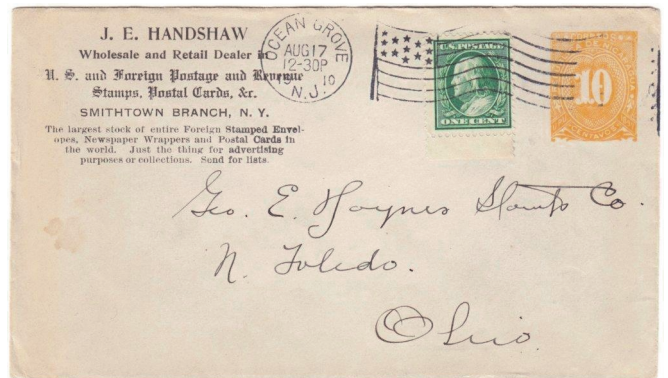 J. E. HANDSHAW
Wholesale and Retail Dealer in
U. S. and Foreign Postage and Revenue
Stamps, Postal Cards, &c.
SMITHTOWN BRANCH, N. Y.
The largest stock of entire Foreign Stamped Envel-
opes, Newspaper Wrappers and Postal Cards in
the world. Just the thing for advertising
purposes or collections. Send for lists.
OCEAN GROVE
AUG 17
12-30P
1910
N.J.
U.S. POSTAGE
ONE CENT
10
Geo. E. Haynes Stamp Co.
N. Toledo.
Ohio